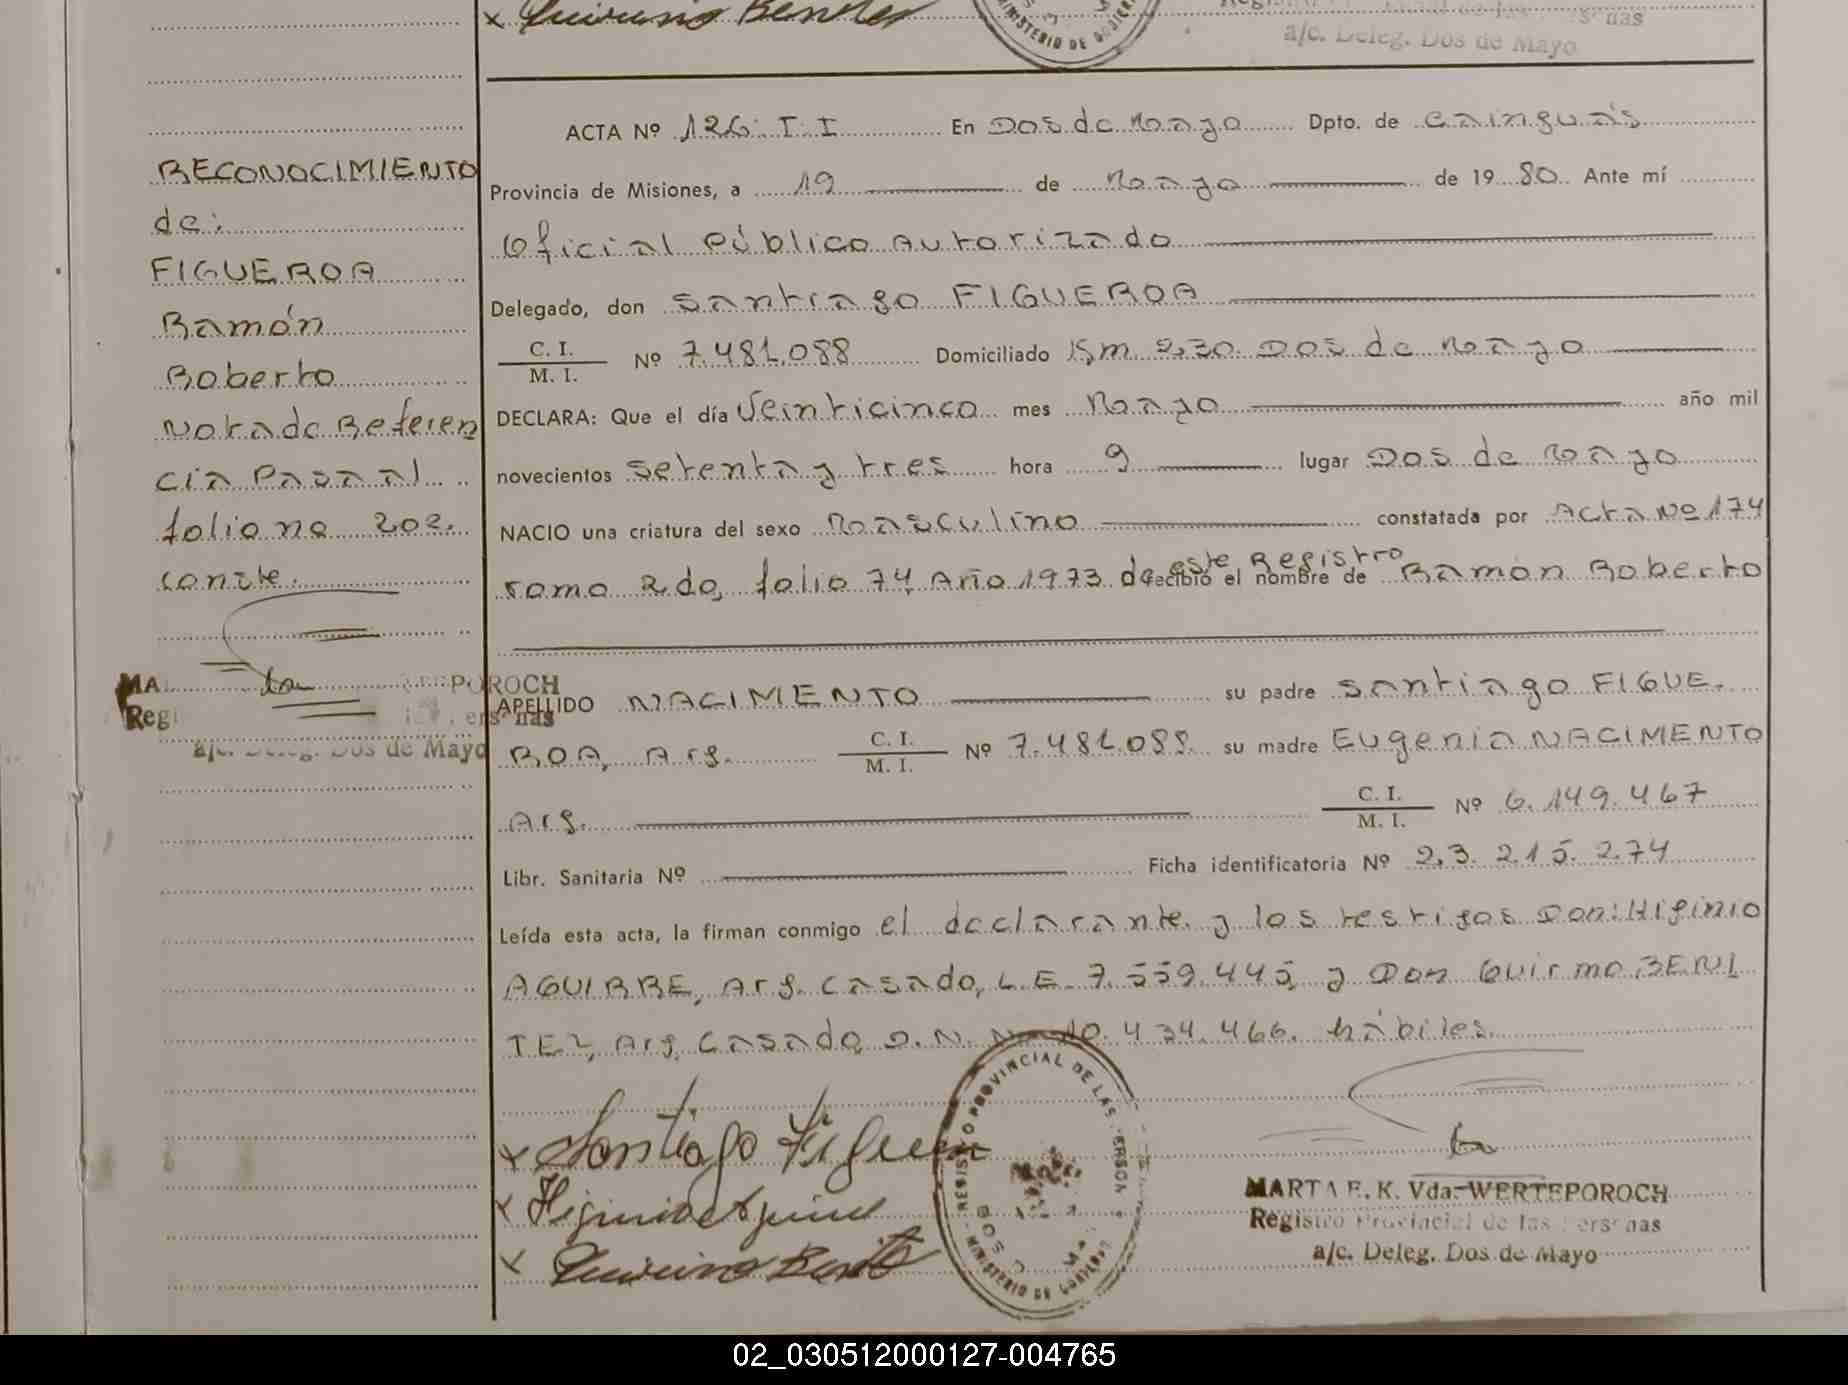 Quirino Benitez
MINISTERIO DE GOBIERNO
a/c. Deleg. Dos de Mayo
RECONOCIMIENTO
de:
FIGUEROA
Ramón
Roberto
Nota de Referen
cia Pasa al
folio no 202.
conste.
a/c. Deleg. Dos de Mayo
ACTA Nº 126. T. I En Dos de Mayo Dpto. de Cainguás
Provincia de Misiones, a 19 de Mayo de 1980. Ante mí
Oficial Público Autorizado
Delegado, don Santiago FIGUEROA
C. I. / M. I. Nº 7.481.088 Domiciliado Km 230. Dos de Mayo
DECLARA: Que el día Veinticinco mes Mayo año mil
novecientos Setenta y tres hora 9 lugar Dos de Mayo
NACIO una criatura del sexo Masculino constatada por Acta Nº 174
Tomo 2do, folio 74, Año 1973 de este Registro recibió el nombre de Ramón Roberto
APELLIDO NACIMIENTO su padre Santiago FIGUE.
ROA, Arg. C. I. / M. I. Nº 7.481.088. su madre Eugenia NACIMIENTO
Arg. C. I. / M. I. Nº 6.149.467
Libr. Sanitaria Nº Ficha identificatoria Nº 23.215.274
Leída esta acta, la firman conmigo el declarante. y los testigos Don: Higinio
AGUIRRE, Arg. Casado, L.E. 7.559.445, y Don Quirino BENI
TEZ, Arg. Casado, D.N. Nº 10.434.466. hábiles.
Santiago Figueroa
Higinio Aguirre
Quirino Benitez
REGISTRO PROVINCIAL DE LAS PERSONAS
MINISTERIO DE GOBIERNO
MARTA E. K. Vda. WERTEPOROCH
Registro Provincial de las Personas
a/c. Deleg. Dos de Mayo
02_030512000127-004765